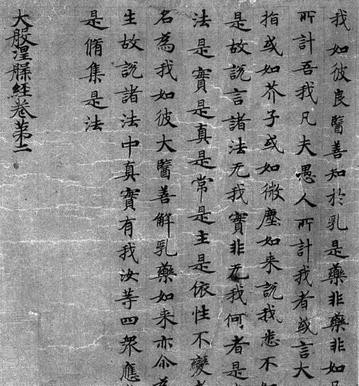 我如彼良醫善知於乳是藥非藥非如
所計吾我凡夫愚人所計我者或言大
指或如芥子或如微塵如来說我悉不
是故說言諸法无我實非无我何者是
法是實是真是常是主是依性不變
名為我如彼大醫善解乳藥如来亦尒
生故說諸法中真實有我汝等四衆應
是脩集是法
大般涅槃經卷第二